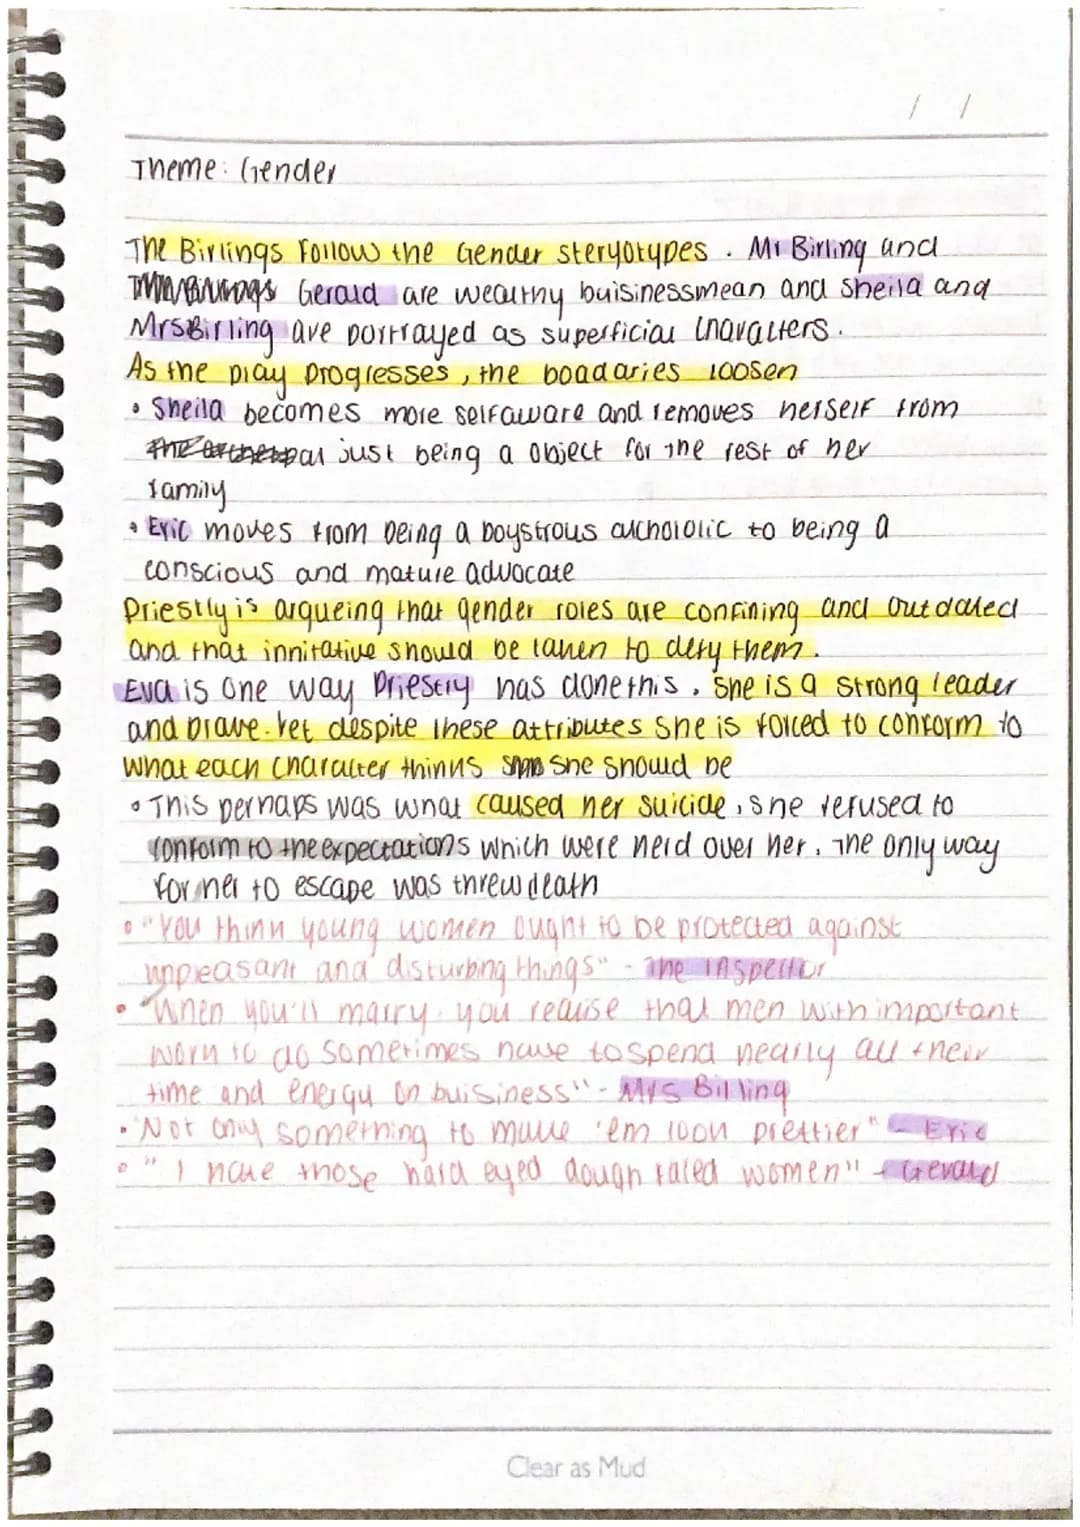 / /
Theme: Gender
The Birlings Follow the Gender steryotypes. Mr Birling and
Gerald are wealthy buisinessmean and Sheila and
Mrs Birling are portrayed as superficial characters.
As the play progresses, the boadaries loosen
• Sheila becomes more selfaware and removes herself from
just being a object for the rest of her
family
• Eric moves from being a boystrous alchololic to being a
conscious and mature advocate
Priestly is argueing that gender roles are confining and outdated
and that innitative should be taken to defy them.
Eva is one way Priestly has done this. She is a strong leader
and brave. Yet despite these attributes she is forced to conform to
what each character thinks she should be
• This perhaps was what caused her suicide, she refused to
conform to the expectations which were held over her. The only way
for her to escape was threw death
• "You think young women ought to be protected against
unpleasant and disturbing things" - The Inspector
• "When you'll marry you realise that men with important
work to do sometimes have to spend nearly all their
time and energy on buisiness" - Mrs Billing
• "Not only something to make 'em look prettier" - Eric
• "I hate those hard eyed dough faced women" - Gerald
Clear as Mud